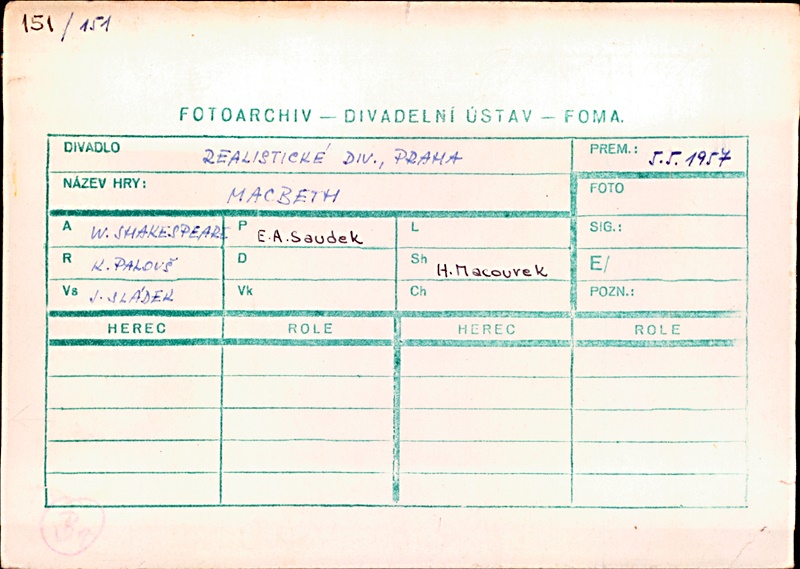 151 / 151
FOTOARCHIV — DIVADELNÍ ÚSTAV — FOMA.
DIVADLO REALISTICKÉ DIV., PRAHA PREM.: 5.5.1957
NÁZEV HRY: MACBETH FOTO
A W. SHAKESPEARE P E.A.Saudek L SIG.:
R K. PALOUŠ D Sh H.Macourek E/
Vs J. SLÁDEK Vk Ch POZN.:
HEREC ROLE HEREC ROLE